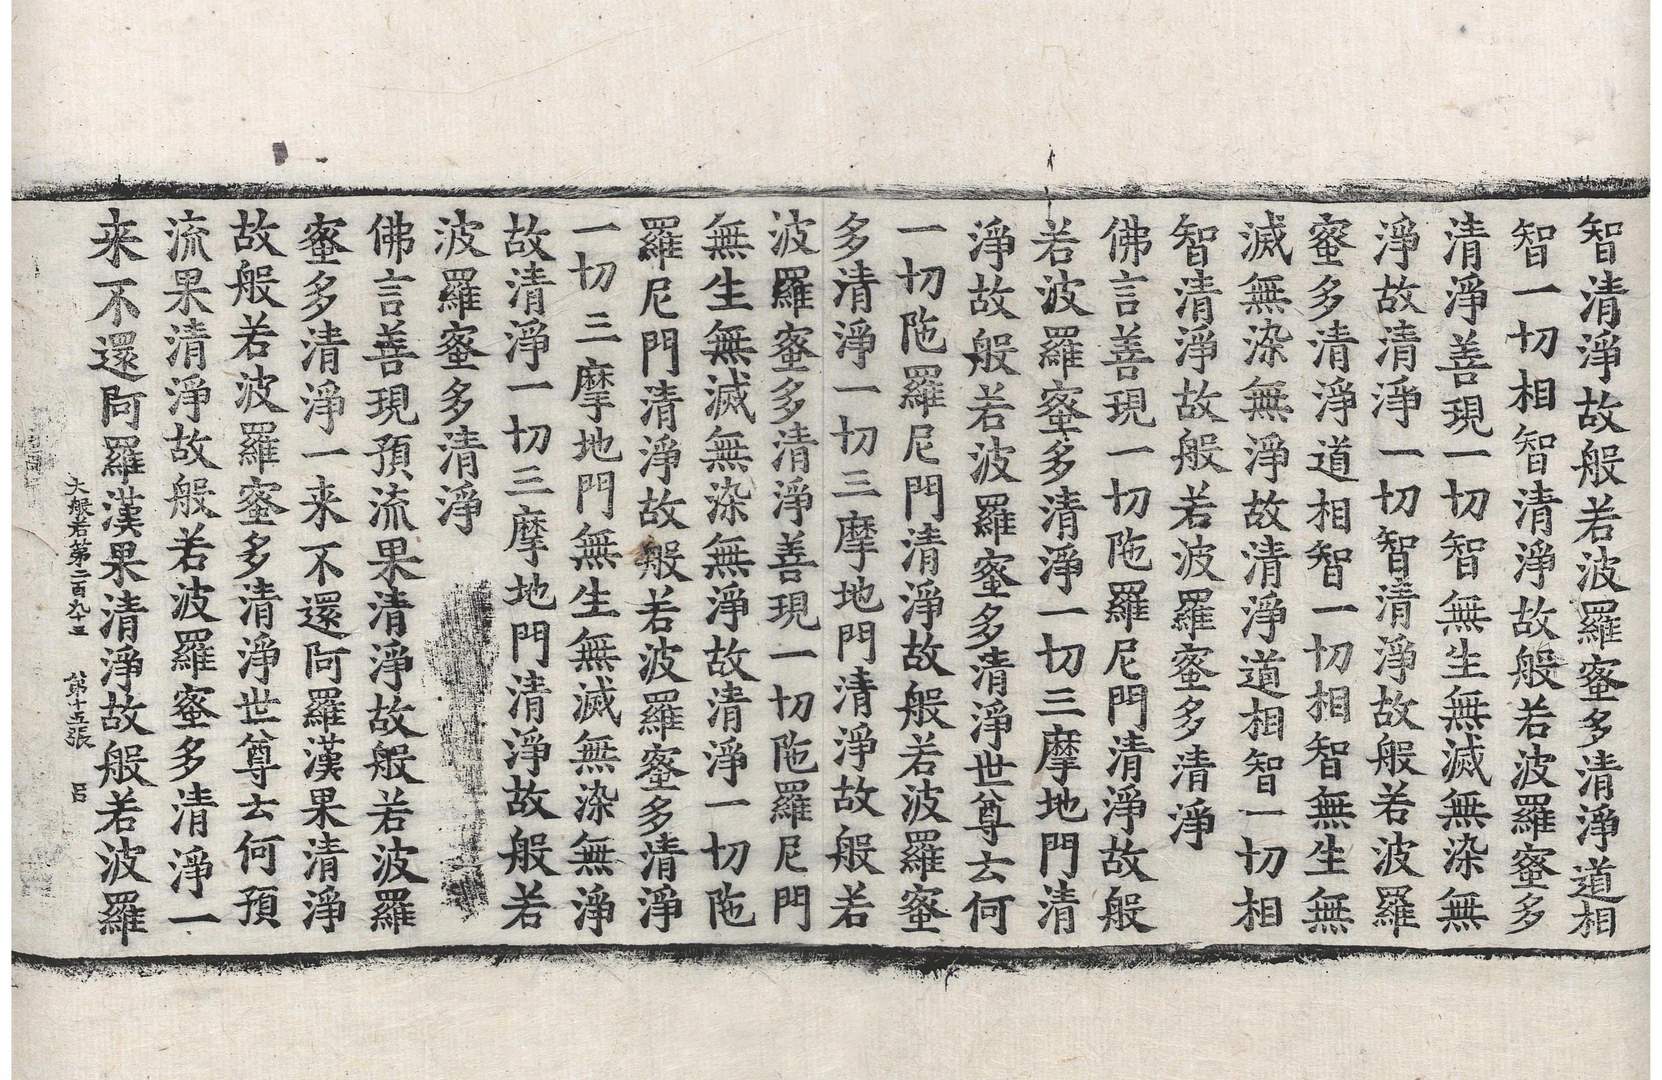 智清淨故般若波羅蜜多清淨道相
智一切相智清淨故般若波羅蜜多
清淨善現一切智無生無滅無染無
淨故清淨一切智清淨故般若波羅
蜜多清淨道相智一切相智無生無
滅無染無淨故清淨道相智一切相
智清淨故般若波羅蜜多清淨
佛言善現一切陁羅尼門清淨故般
若波羅蜜多清淨一切三摩地門清
淨故般若波羅蜜多清淨世尊云何
一切陁羅尼門清淨故般若波羅蜜
多清淨一切三摩地門清淨故般若
波羅蜜多清淨善現一切陁羅尼門
無生無滅無染無淨故清淨一切陁
羅尼門清淨故般若波羅蜜多清淨
一切三摩地門無生無滅無染無淨
故清淨一切三摩地門清淨故般若
波羅蜜多清淨
佛言善現預流果清淨故般若波羅
蜜多清淨一来不還阿羅漢果清淨
故般若波羅蜜多清淨世尊云何預
流果清淨故般若波羅蜜多清淨一
来不還阿羅漢果清淨故般若波羅
大般若第二百九十三 第十五張